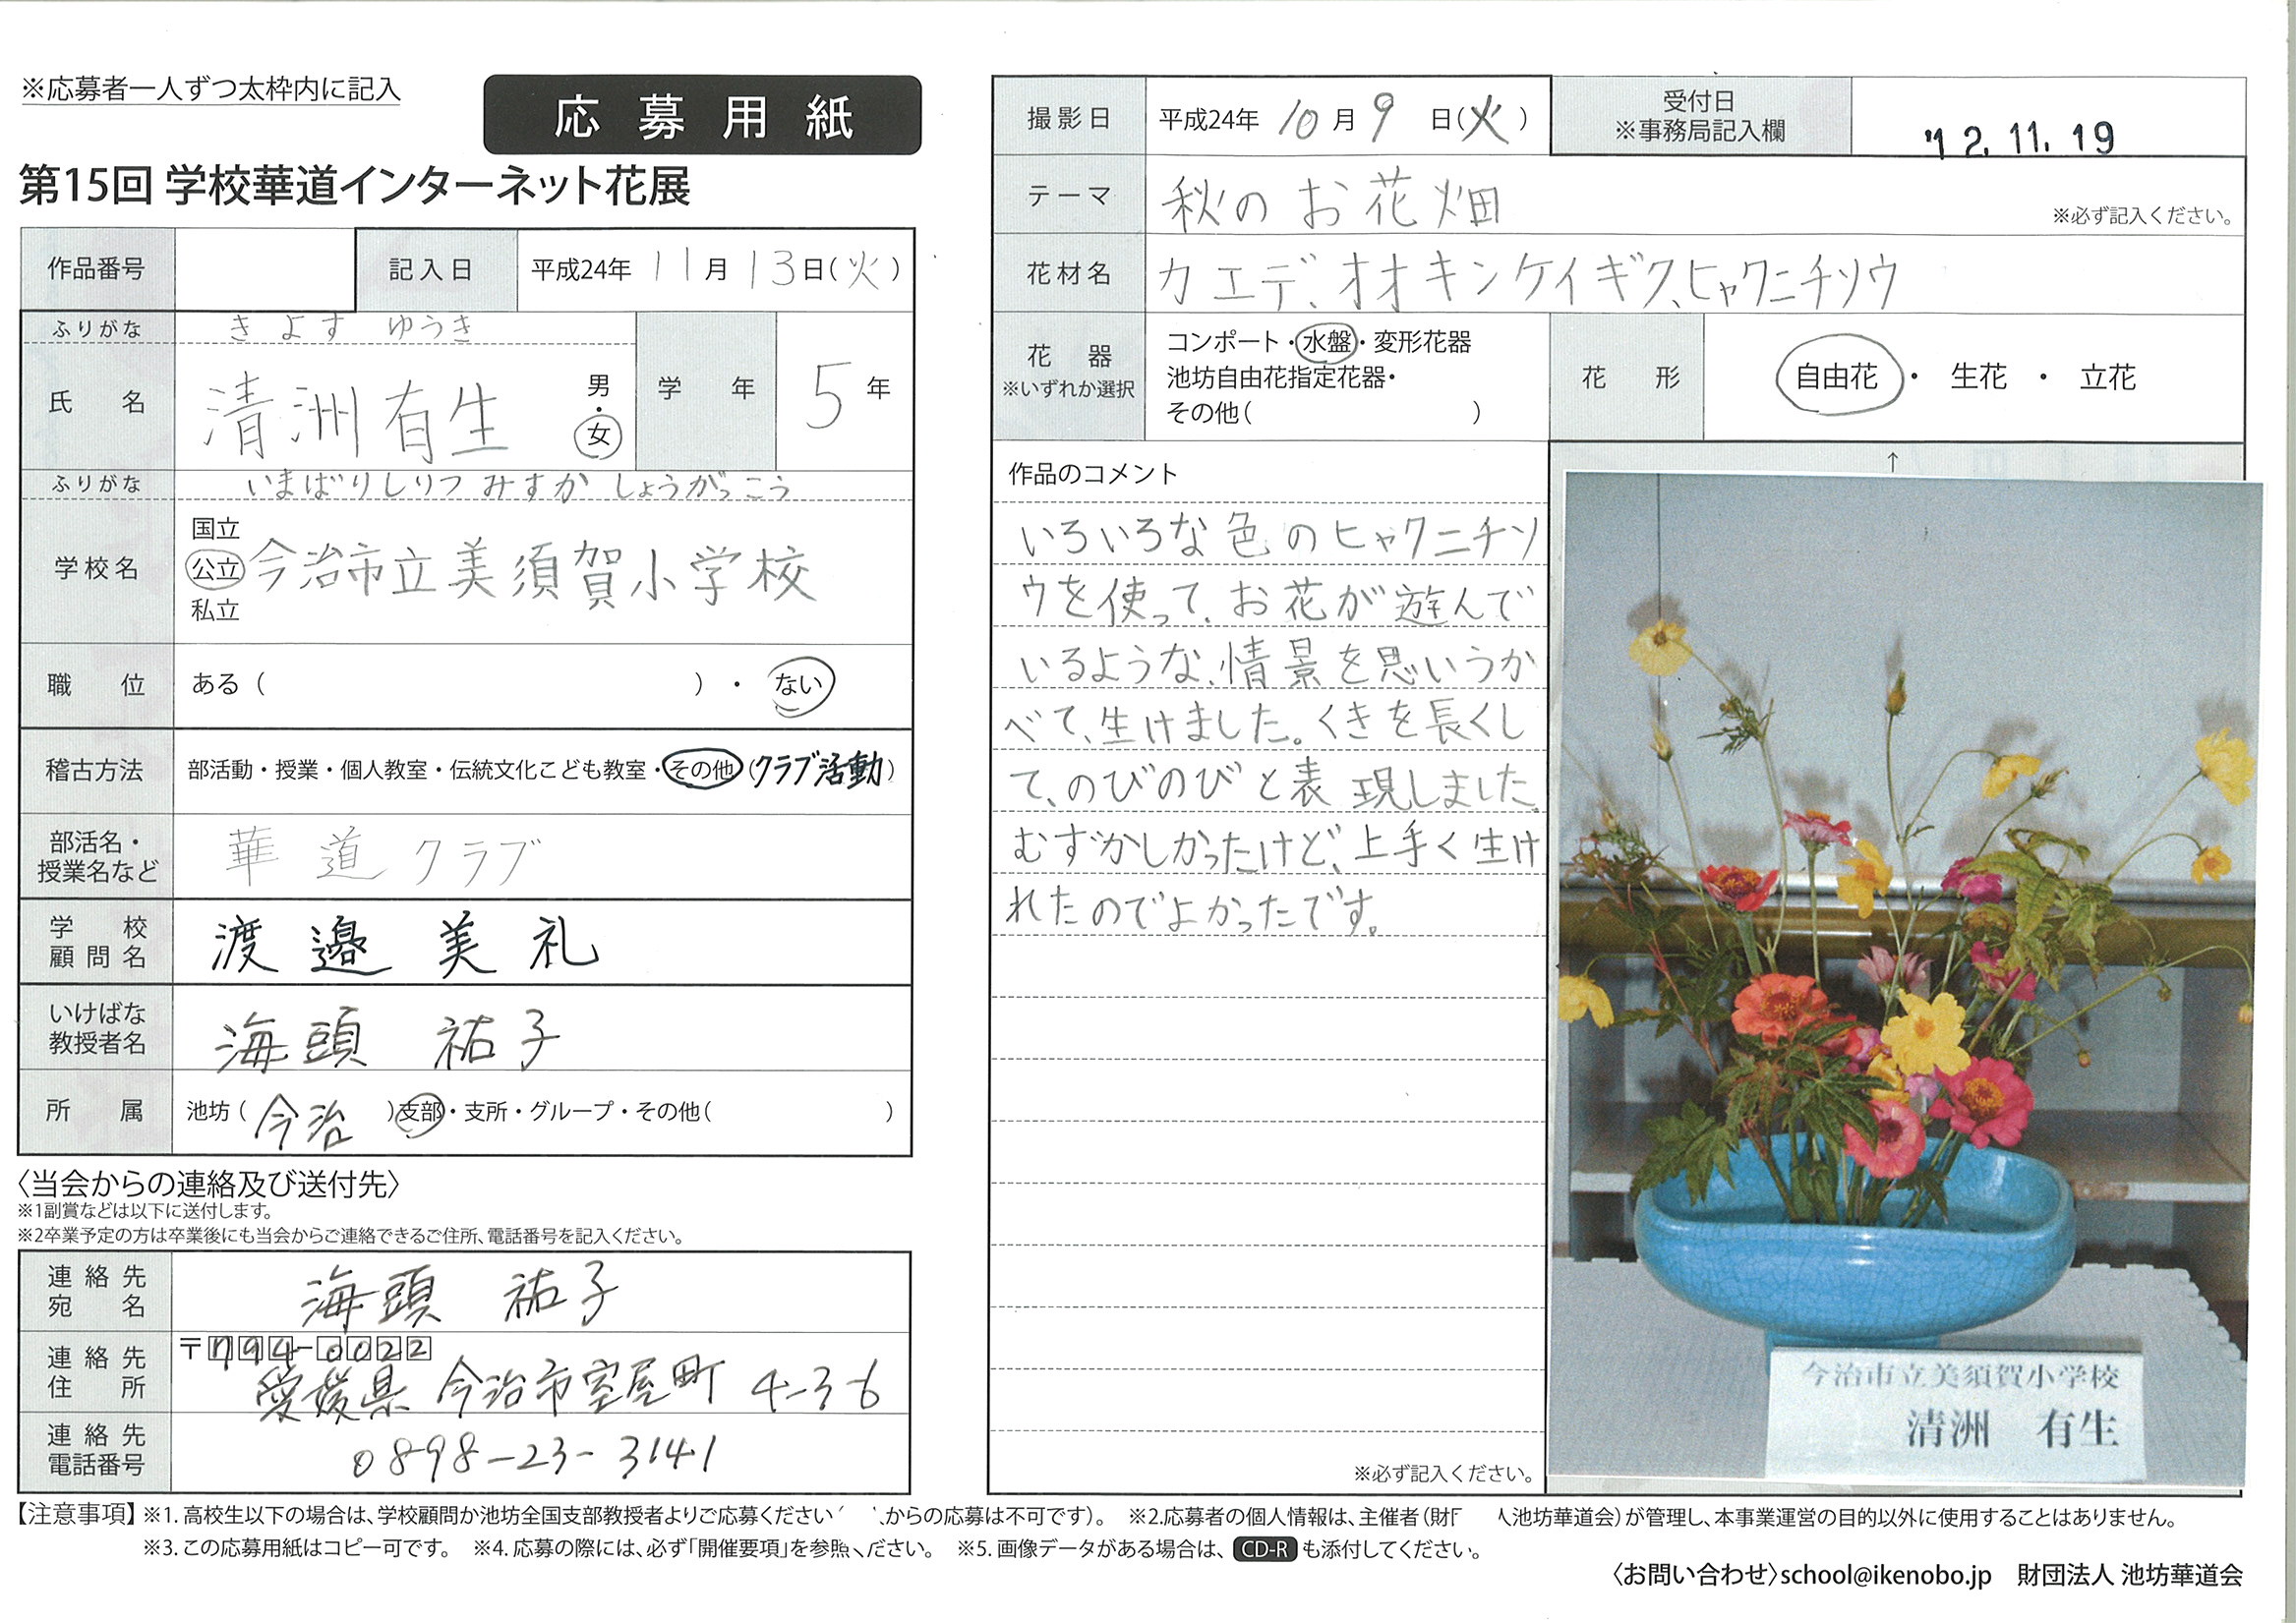 ※応募者一人ずつ太枠内に記入
応募用紙
第15回 学校華道インターネット花展
作品番号
記入日 平成24年 11月 13日(火)
ふりがな きよす ゆうき
氏名 清洲有生 男・女
学年 5年
ふりがな いまばりしりつ みすか しょうがっこう
学校名 国立 公立 私立 今治市立美須賀小学校
職位 ある( )・ない
稽古方法 部活動・授業・個人教室・伝統文化こども教室・その他(クラブ活動)
部活名・授業名など 華道クラブ
学校顧問名 渡邉美礼
いけばな教授者名 海頭 祐子
所属 池坊(今治)支部・支所・グループ・その他( )
〈当会からの連絡及び送付先〉
※1副賞などは以下に送付します。
※2卒業予定の方は卒業後にも当会からご連絡できるご住所、電話番号を記入ください。
連絡先宛名 海頭 祐子
連絡先住所 〒794-0022
愛媛県 今治市室屋町 4-3-6
連絡先電話番号 0898-23-3141
撮影日 平成24年 10月 9日(火)
受付日 ※事務局記入欄 '12.11.19
テーマ 秋のお花畑
※必ず記入ください。
花材名 カエデ、オオキンケイギク、ヒャクニチソウ
花器 ※いずれか選択
コンポート・水盤・変形花器
池坊自由花指定花器・
その他( )
花形 自由花・生花・立花
作品のコメント
いろいろな色のヒャクニチソ
ウを使って、お花が遊んで
いるような、情景を思いうか
べて、生けました。くきを長くし
て、のびのびと表現しました。
むずかしかったけど、上手く生け
れたのでよかったです。
※必ず記入ください。
↑
今治市立美須賀小学校
清洲 有生
【注意事項】※1. 高校生以下の場合は、学校顧問か池坊全国支部教授者よりご応募ください からの応募は不可です)。 ※2.応募者の個人情報は、主催者(財 人池坊華道会)が管理し、本事業運営の目的以外に使用することはありません。
※3. この応募用紙はコピー可です。 ※4. 応募の際には、必ず「開催要項」を参照ください。 ※5. 画像データがある場合は、CD-Rも添付してください。
〈お問い合わせ〉school@ikenobo.jp 財団法人 池坊華道会